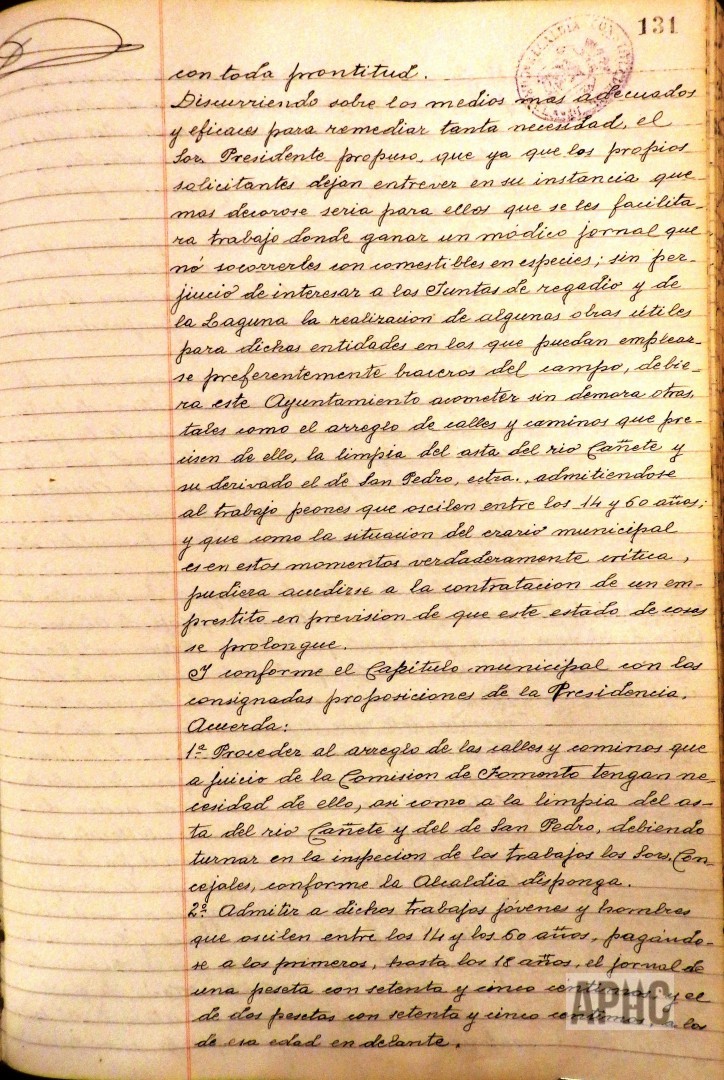 131
con toda prontitud.
Discurriendo sobre los medios mas adecuados
y eficaces para remediar tanta necesidad, el
Sor. Presidente propuso, que ya que los propios
solicitantes dejan entrever en su instancia que
mas decoroso seria para ellos que se les facilita-
ra trabajo donde ganar un módico jornal que
nó socorrerles con comestibles en especies; sin per-
juicio de interesar a las Juntas de regadio y de
la Laguna la realizacion de algunas obras útiles
para dichas entidades en los que puedan emplear-
se preferentemente braceros del campo, debie-
ra este Ayuntamiento acometer sin demora otras,
tales como el arreglo de calles y caminos que pre-
cisen de ello, la limpia del asta del rio Cañete y
su derivado el de San Pedro, ectra., admitiendose
al trabajo peones que oscilen entre los 14 y 60 años;
y que como la situacion del erario municipal
es en estos momentos verdaderamente critica,
pudiera accedirse a la contratacion de un em-
prestito en prevision de que este estado de cosas
se prolongue.
Y conforme el Capítulo municipal con las
consignadas proposiciones de la Presidencia,
Acuerda:
1ª Proceder al arreglo de las calles y caminos que
a juicio de la Comision de Fomento tengan ne-
cesidad de ello, asi como a la limpia del as-
ta del rio Cañete y del de San Pedro, debiendo
turnar en la inspecion de los trabajos los Sors. Con-
cejales, conforme la Alcaldia disponga.
2º Admitir a dichos trabajos jóvenes y hombres
que oscilen entre los 14 y los 60 años, pagándo-
se a los primeros, hasta los 18 años, el jornal de
una peseta con setenta y cinco centimos, y el
de dos pesetas con setenta y cinco centimos, a los
de esa edad en delante.
APHC